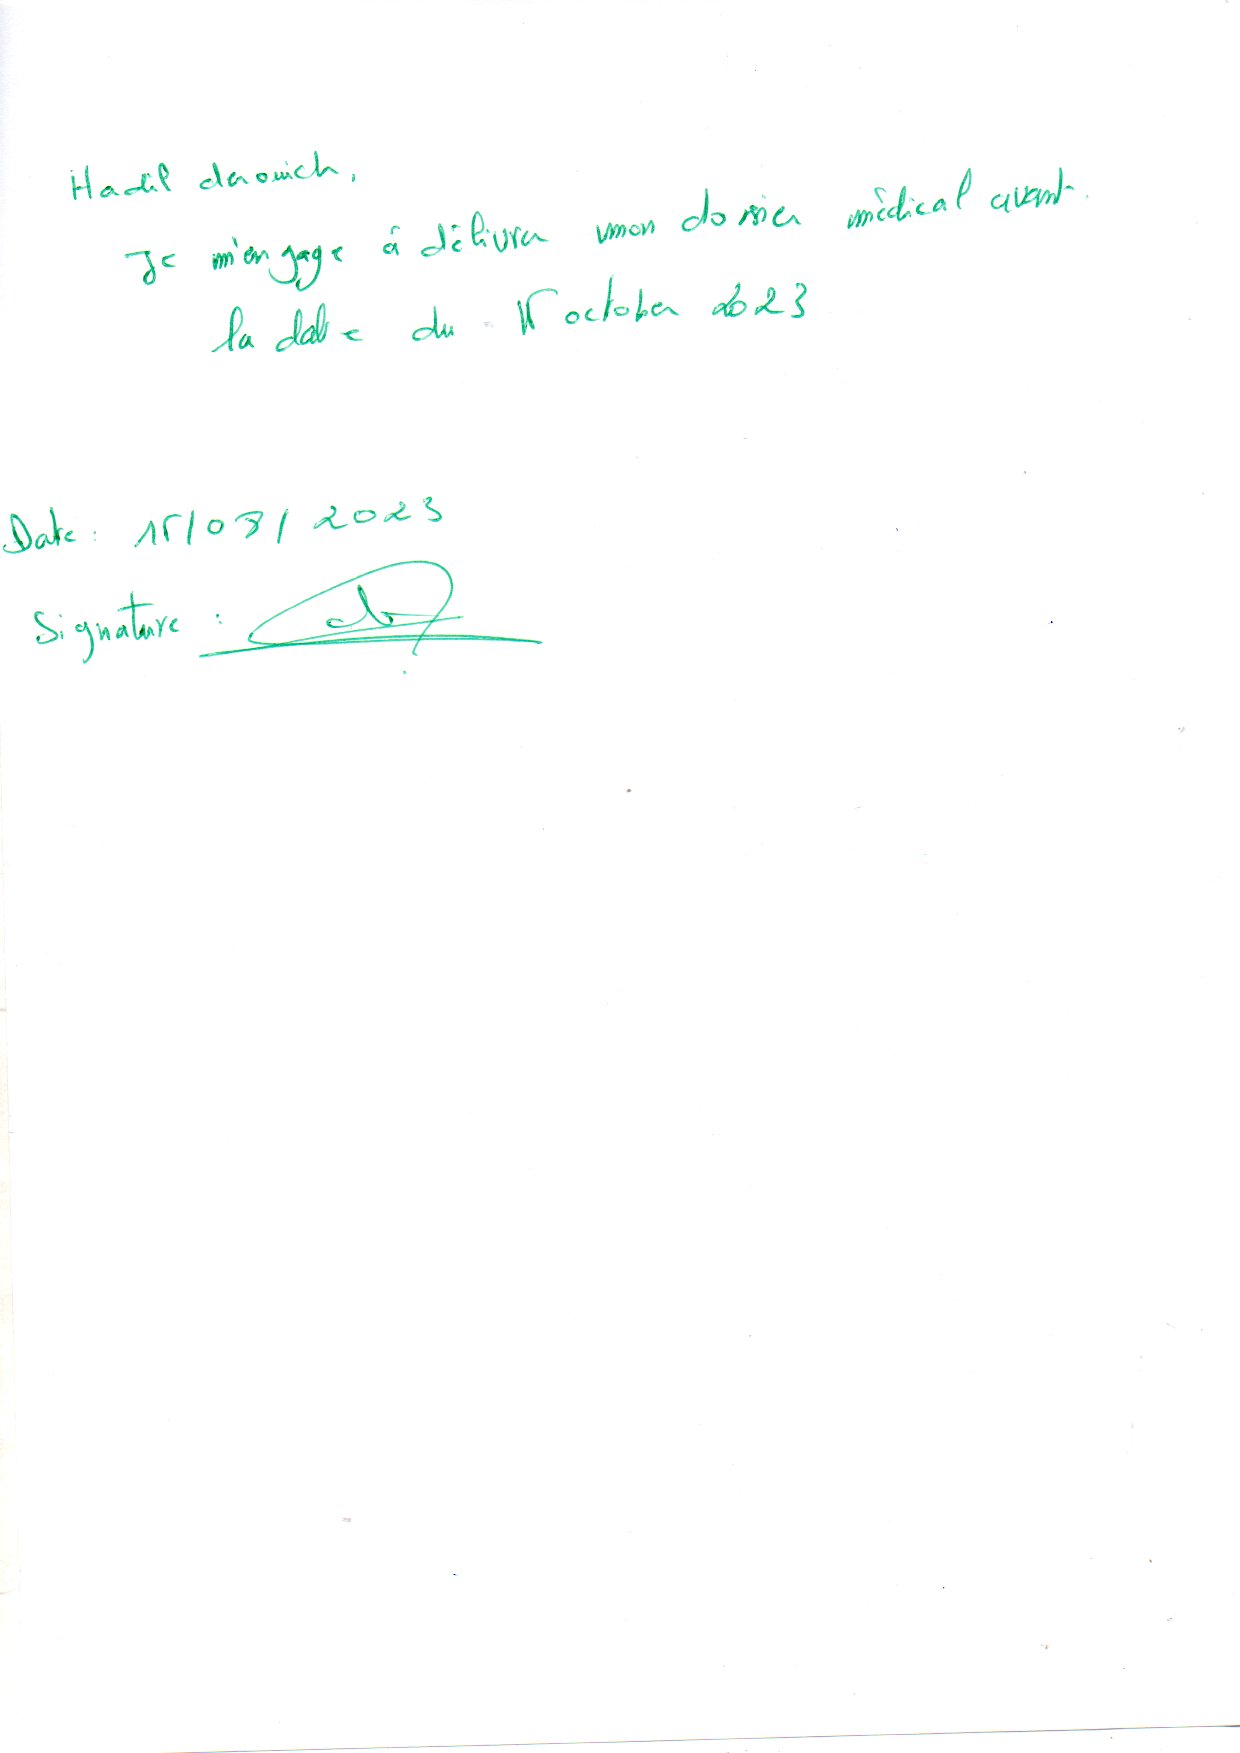 Hadil derouich,
Je m'engage à délivrer mon dossier médical avant
la date du 15 october 2023
Date : 15/08/2023
Signature :